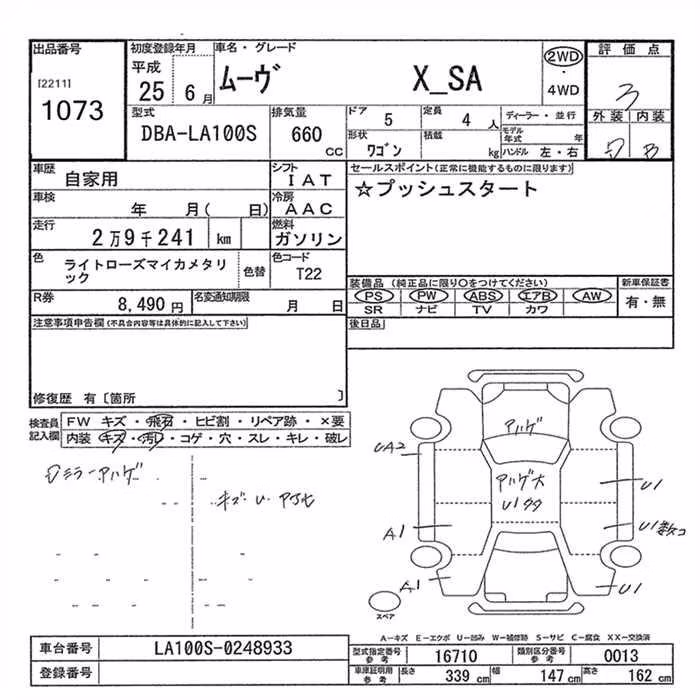 出品番号 初度登録年月 車名・グレード 2WD 評価点
[2211] 平成 ムーヴ X_SA ・ 3
1073 25 6月 4WD 外装 内装
型式 排気量 ドア 5 定員 4人 ディーラー・並行 D B
DBA-LA100S 660cc 形状 ワゴン 積載 kg モデル年式 年
ハンドル 左・右
車歴 自家用 シフト IAT セールスポイント(正常に機能するものに限ります)
車検 年 月( 日) 冷房 AAC ☆プッシュスタート
走行 2万9千241 km 燃料 ガソリン
色 ライトローズマイカメタリック 色替 色コード T22
装備品(純正品に限り〇をつけてください) 新車保証書
R券 8,490円 名変通知期限 月 日 PS PW ABS エアB AW 有・無
SR ナビ TV カワ
注意事項申告欄(不具合内容等は具体的に記入して下さい) 後日品
修復歴 有〔箇所 〕
検査員記入欄 FW キズ・飛石・ヒビ割・リペア跡・×要
内装 キズ・汚レ・コゲ・穴・スレ・キレ・破レ
ミラーアハゲ
キズ・U
アハゲ
UA2
アハゲ大
U1
A1
U1
A1
U1
スペア
A−キズ E−エクボ U−凹み W−補修跡 S−サビ C−腐食 XX−交換済
車台番号 LA100S-0248933 型式指定番号 参考 16710 類別区分番号 参考 0013
登録番号 車庫証明用 参考 長さ 339 cm 幅 147 cm 高さ 162 cm